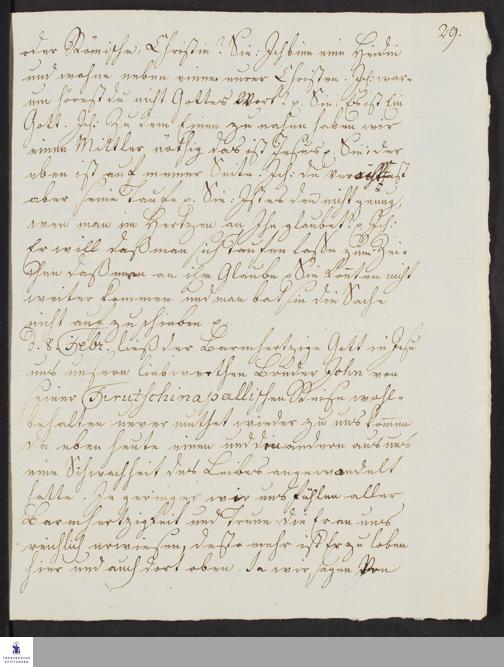 29.
oder Römische Christin? Sie: Ich bin eine Heidin
und wohne neben einem eurer Christen. Ich: war-
um hörest du nicht Gottes Wort? p. Sie: Es ist Ein
Gott. Ich: Zu dem Einen zu nahen haben wir
einen Mittler nöthig das ist Jesus p. Sie: der
eben ist auf meiner Seite. Ich: du verachtest
aber seine Taufe p. Sie: Ists den nicht genug,
wen man im Hertzen an Ihn glaubet? p. Ich:
Er will daß man sich taufen laße zum Zei-
chen daß man an ihn Glaube p Sie konten nicht
weiter kommen und man bat sie die Sache
nicht auf zu schieben p
d. 8. Febr. ließ der Barmhertzige Gott in Jesu
uns unsern liebwerthen Bruder John von
seiner Tirutschinapallischen Reise wohl-
behalten unvermuthet wieder zu uns kommen
da eben heute einen und den andern aus uns
eine Schwachheit des Leibes angewandelt
hatte. Je geringer wir uns fühlen aller
Barmhertzigkeit und Treue die Er an uns
reichlich erwiesen, desto mehr ist Er zu loben
hier und auch dort oben. Ja wir sagen von
FRANCKESCHE
STIFTUNGEN